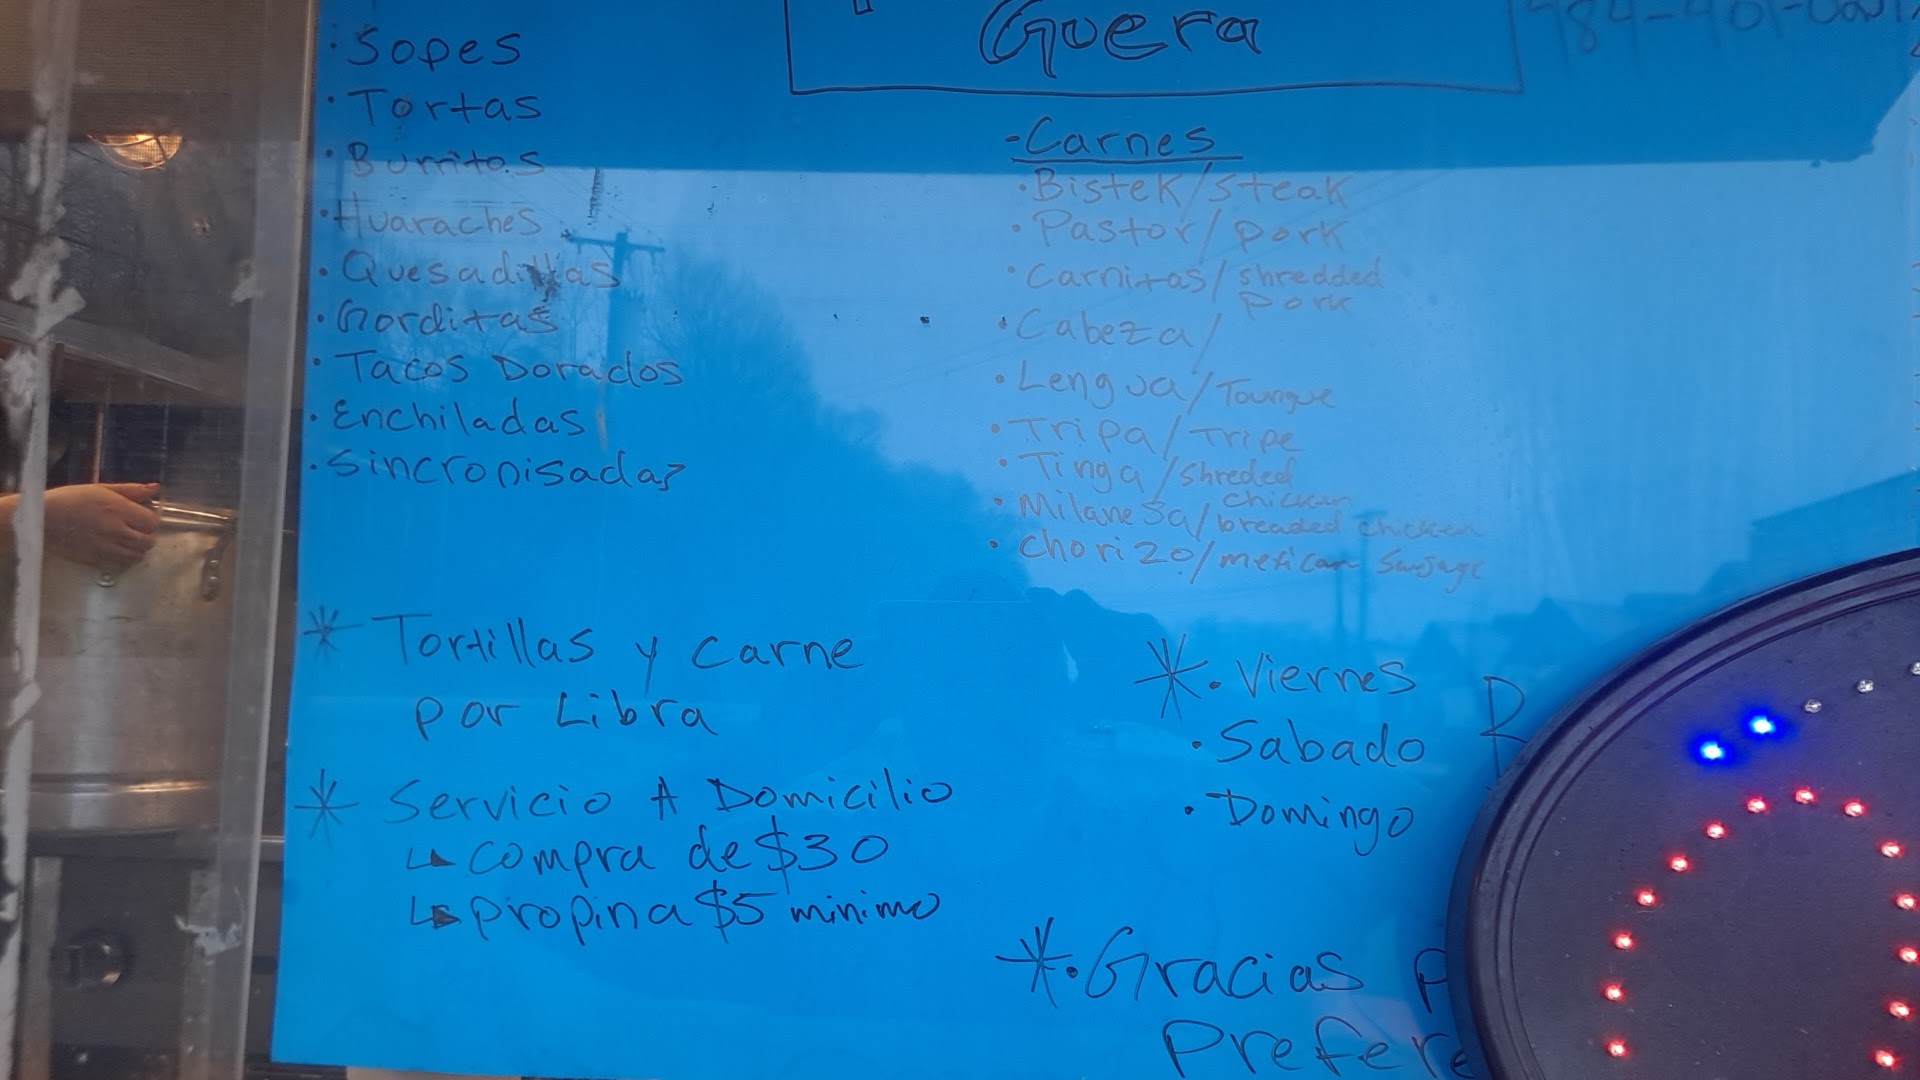 Guera
· Sopes
· Tortas
· Burritos
· Huaraches
· Quesadillas
· Gorditas
· Tacos Dorados
· Enchiladas
· Sincronisadas
- Carnes
· Bistek/steak
· Pastor/pork
· Carnitas/shredded
pork
· Cabeza/
· Lengua/Toungue
· Tripa/Tripe
· Tinga/shreded
chicken
· Milanesa/breaded chicken
· Chorizo/mexican Sausage
* Tortillas y carne
por Libra
* Servicio A Domicilio
↳ compra de $30
↳ propina $5 minimo
* · Viernes
· Sabado
· Domingo
* · Gracias